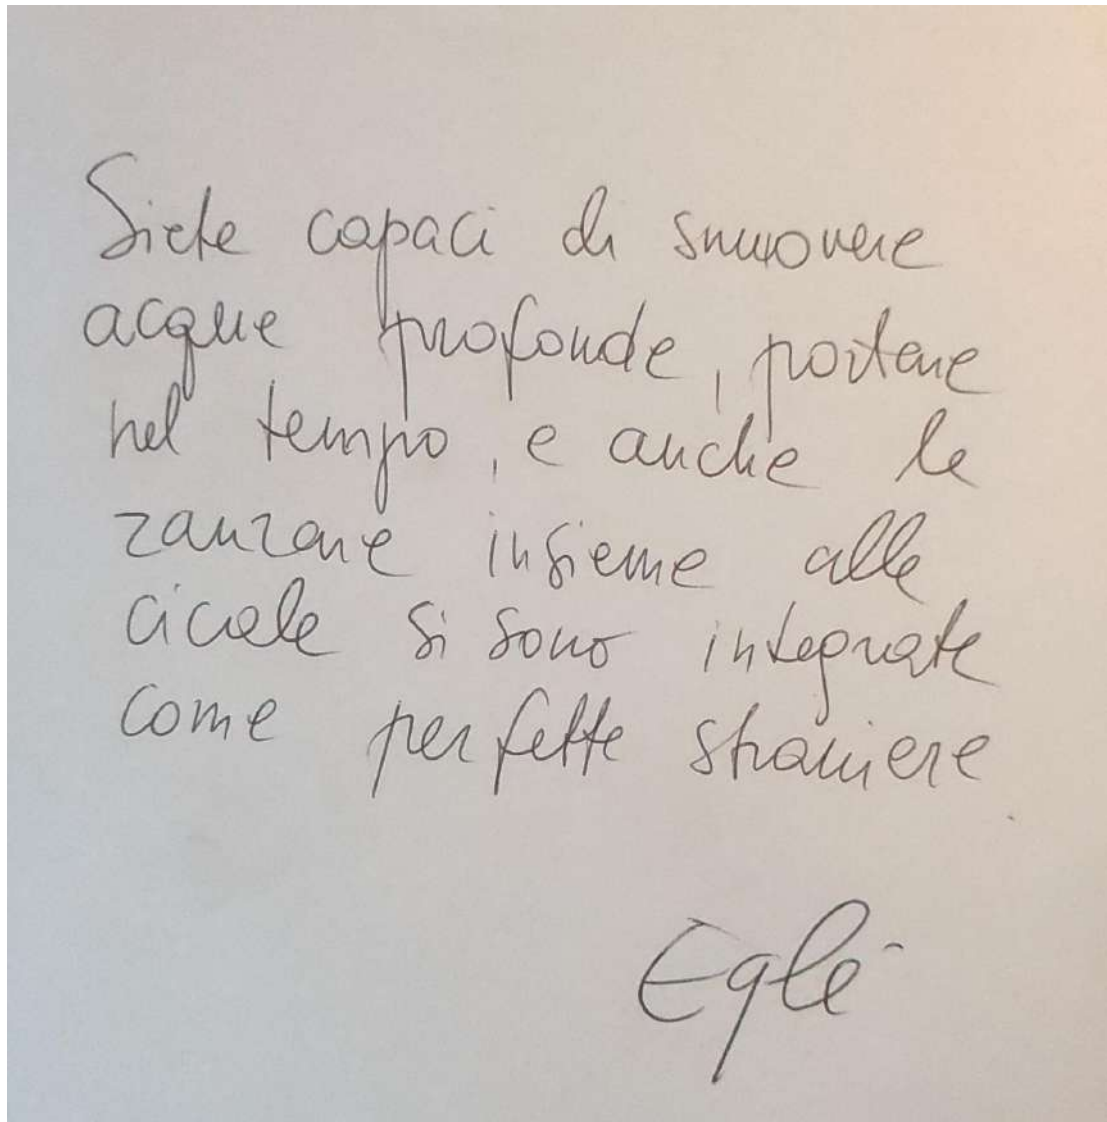 Siete capaci di smuovere
acque profonde, portare
nel tempo, e anche le
zanzare insieme alle
cicale si sono integrate
come perfette straniere.
Eglé